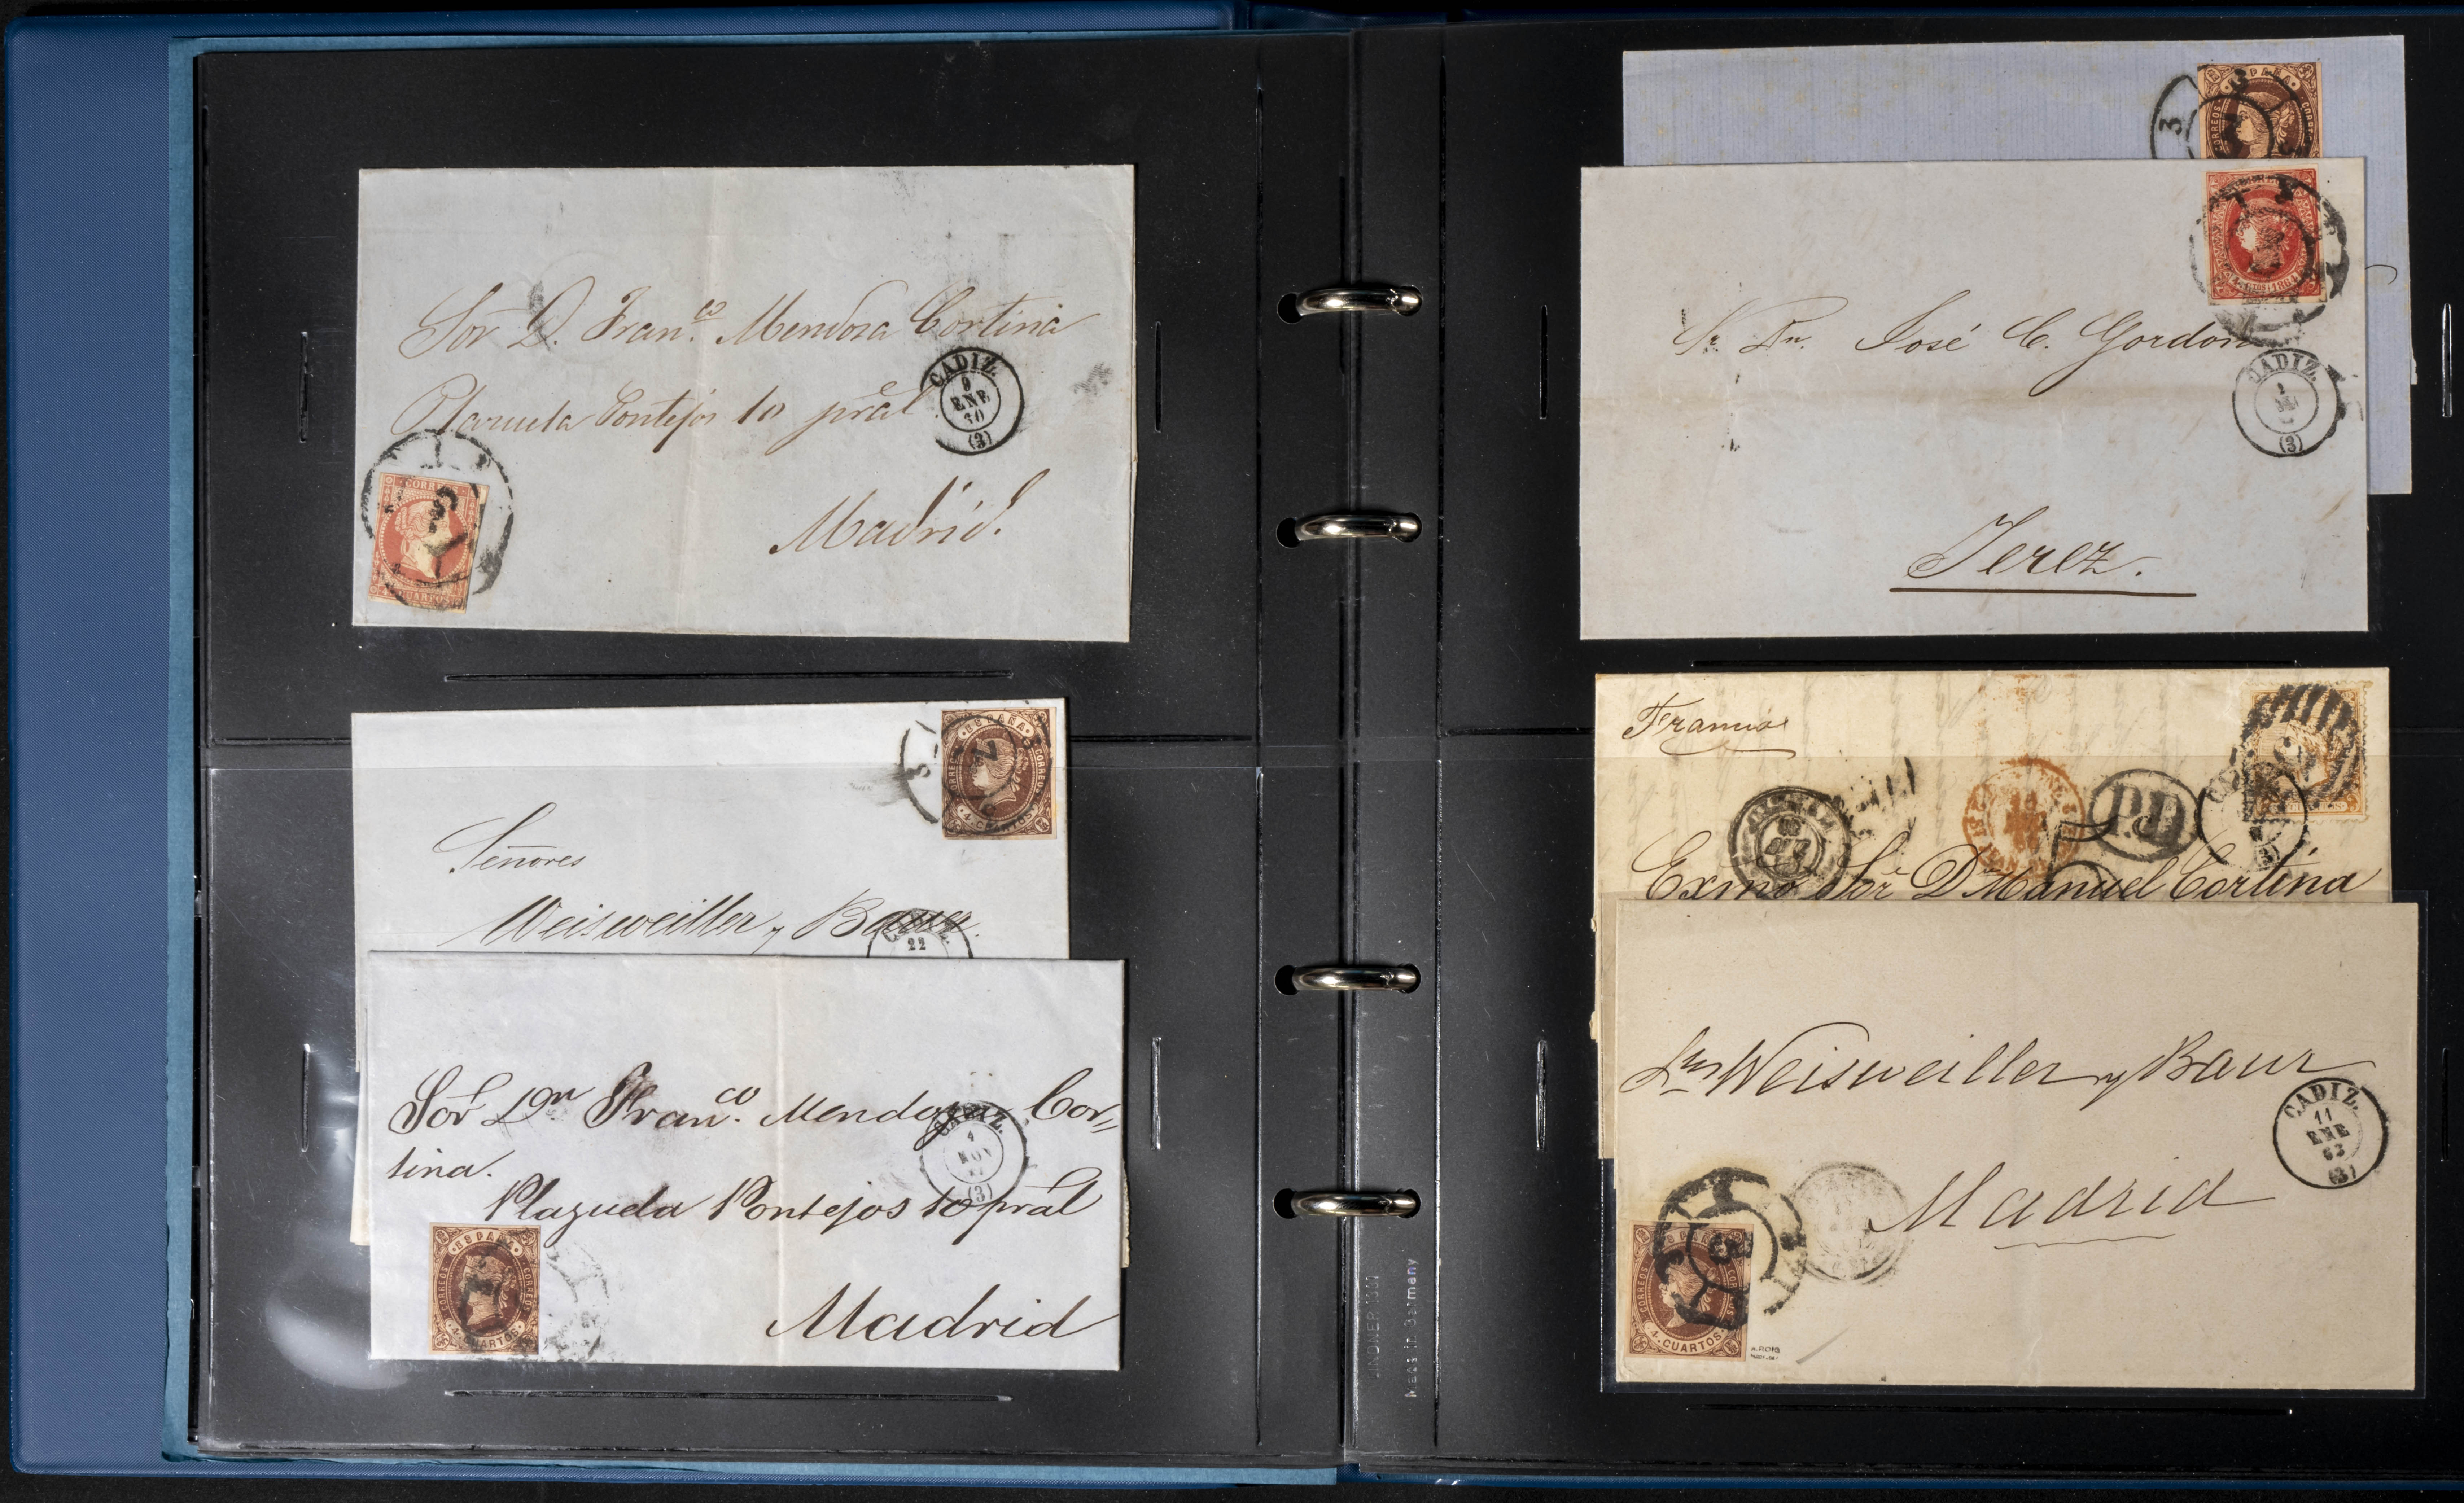 Sor D. Fran.co Mendoza Cortina
Plazuela Pontejos 10 pral
Madrid.
CADIZ.
9
ENE
60
(3)
CORREOS
CUARTOS
Señores
Weisweiller y Bauer.
ESPAÑA
CORREOS
CORREOS
4 CUARTOS
22
Sor Dn Fran.co Mendoza Cor=
tina.
Plazuela Pontejos 10 pral
Madrid
CADIZ.
4
NOV
(3)
ESPAÑA
CORREOS
CORREOS
4 CUARTOS
ESPAÑA
CORREOS
3
Sr. Dn. José C. Gordon
Jerez.
CADIZ.
(3)
Francia
P.D.
Exmo Sor D Manuel Cortina
Sres Weisweiller y Baur
Madrid
CADIZ.
11
ENE
63
(3)
ESPAÑA
CORREOS
4 CUARTOS
A.ROIG
LINDNER
Made in Germany